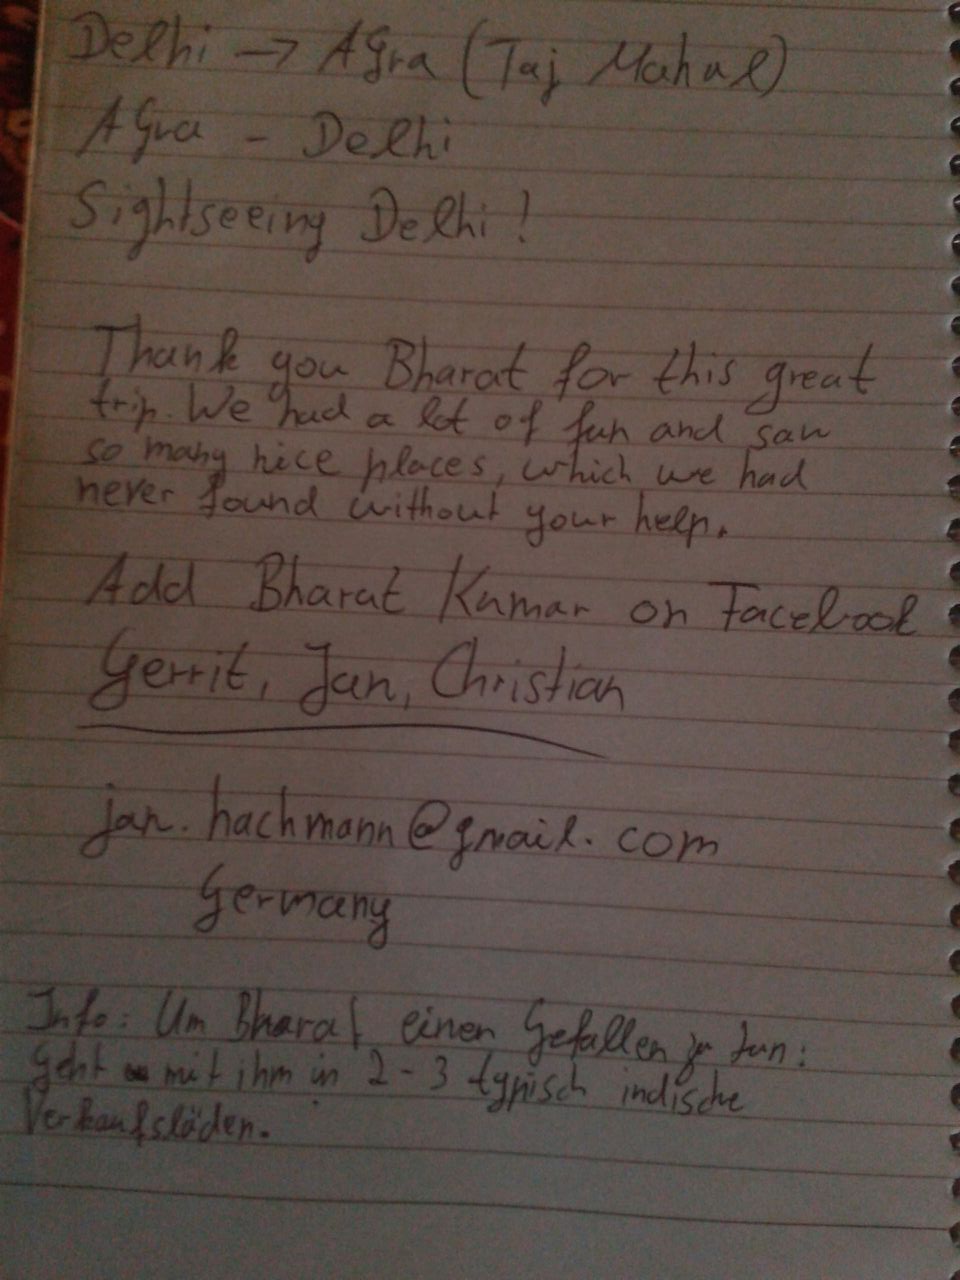 Delhi → Agra (Taj Mahal)
Agra - Delhi
Sightseeing Delhi!
Thank you Bharat for this great
trip. We had a lot of fun and saw
so many nice places, which we had
never found without your help.
Add Bharat Kumar on Facebook
Gerrit, Jan, Christian
jan.hachmann@gmail.com
Germany
Info: Um Bharat einen Gefallen zu tun:
Geht mit ihm in 2-3 typisch indische
Verkaufsläden.